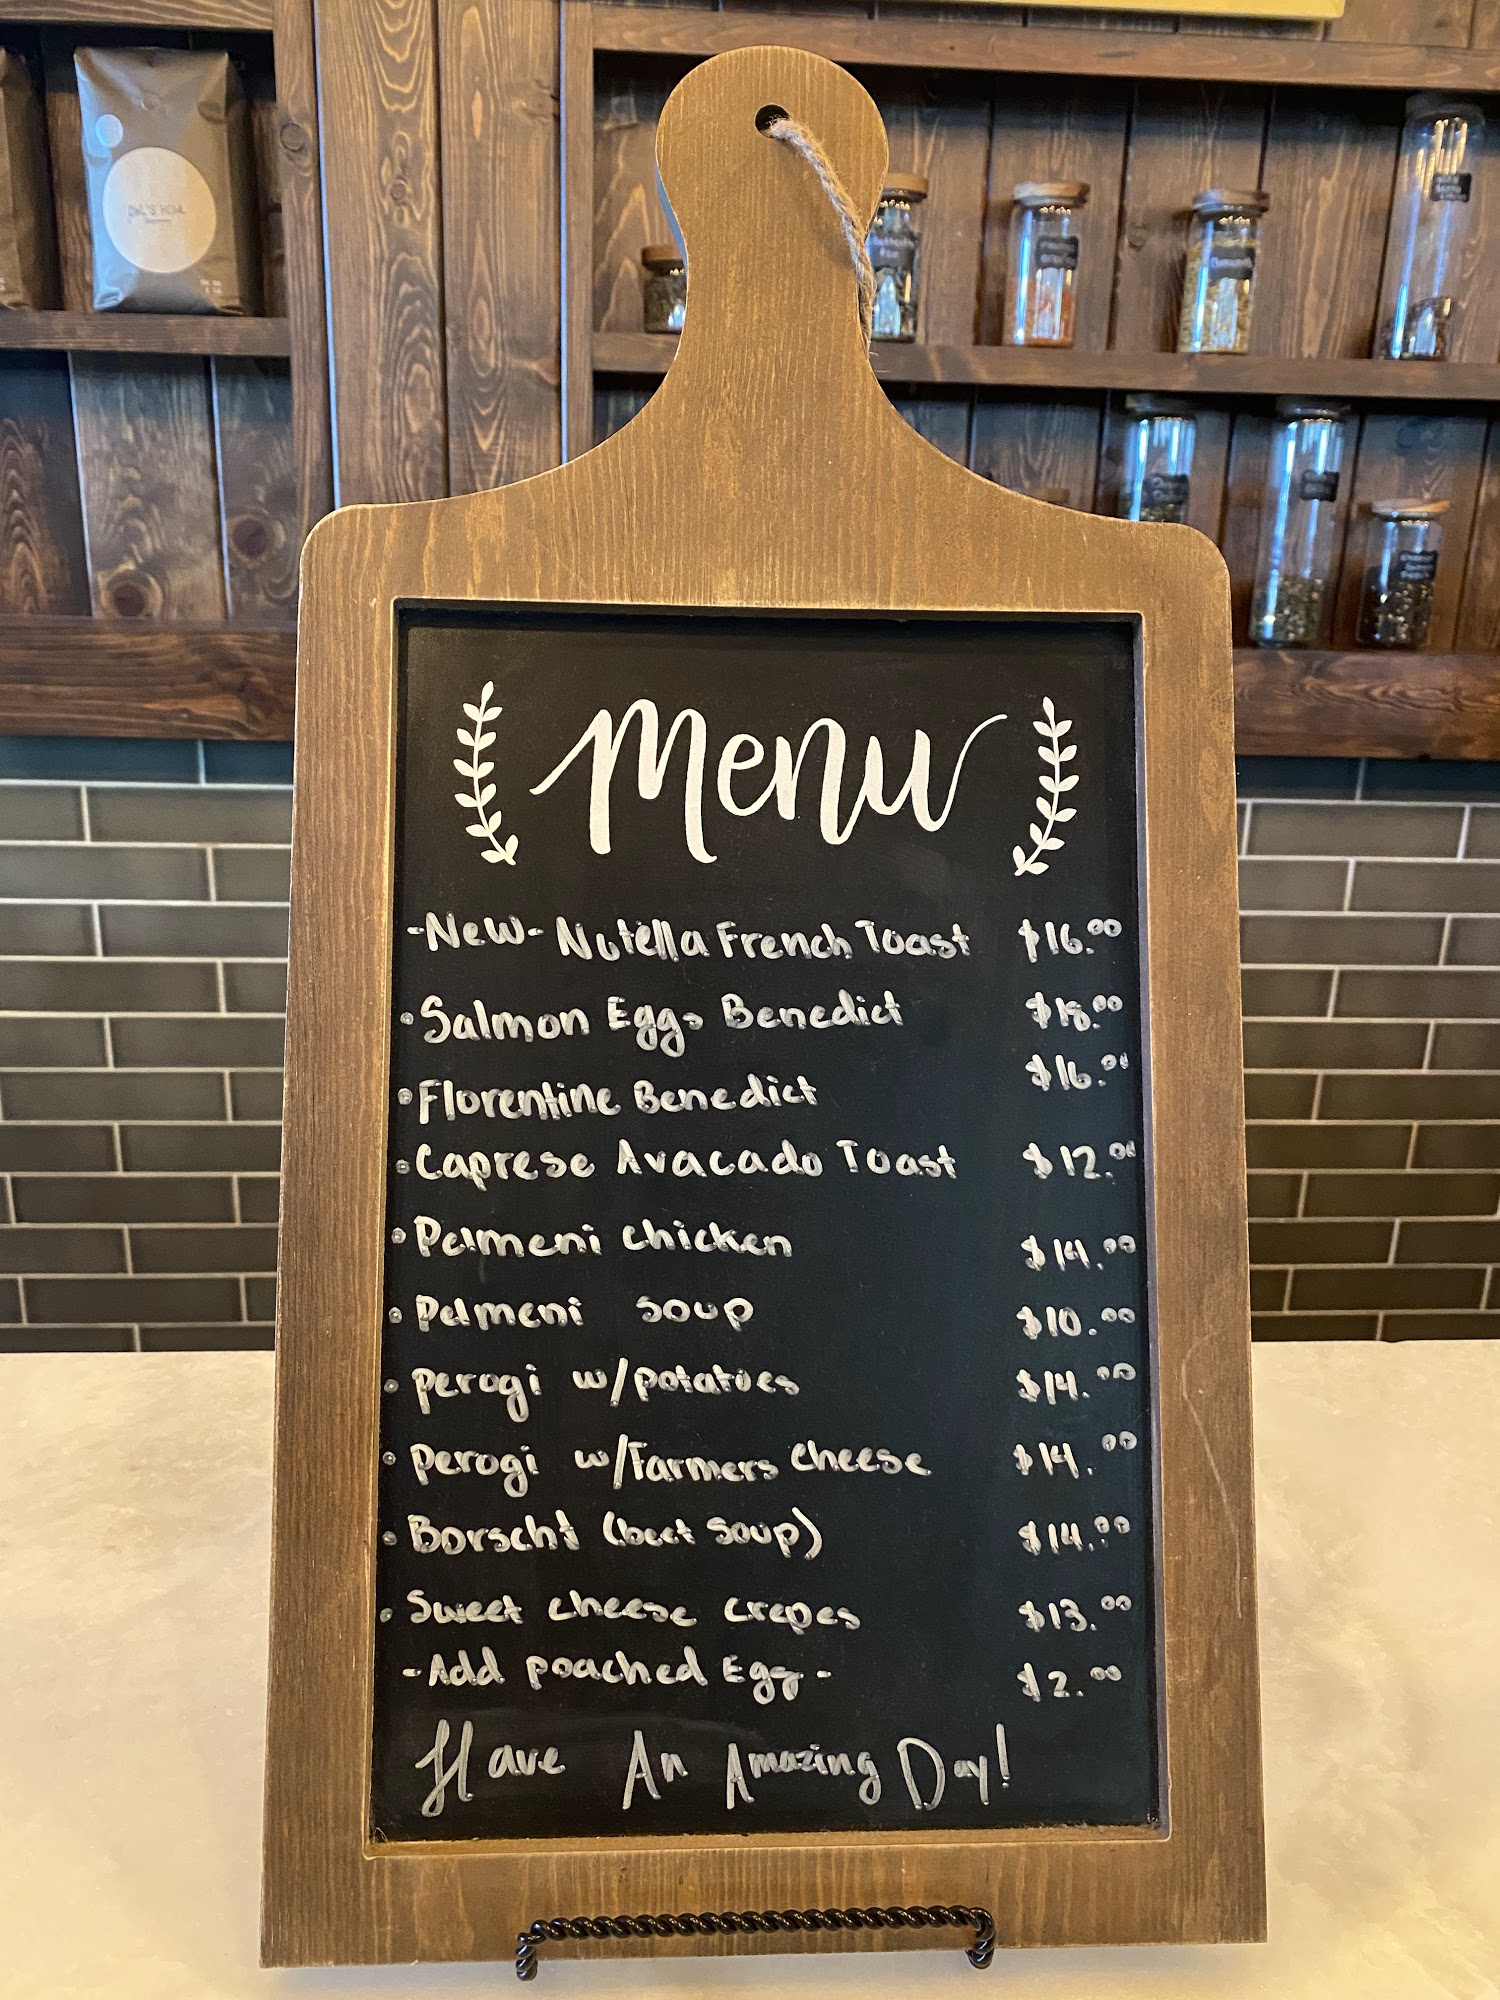 OWL'S HOWL
Menu
-New- Nutella French Toast $16.00
•Salmon Eggs Benedict $18.00
•Florentine Benedict $16.00
•Caprese Avacado Toast $12.00
•Pelmeni chicken $14.00
•Pelmeni soup $10.00
•perogi w/potatoes $14.00
•perogi w/Farmers cheese $14.00
•Borscht (beet soup) $14.00
•Sweet cheese crepes $13.00
-Add poached Egg- $2.00
Have An Amazing Day!